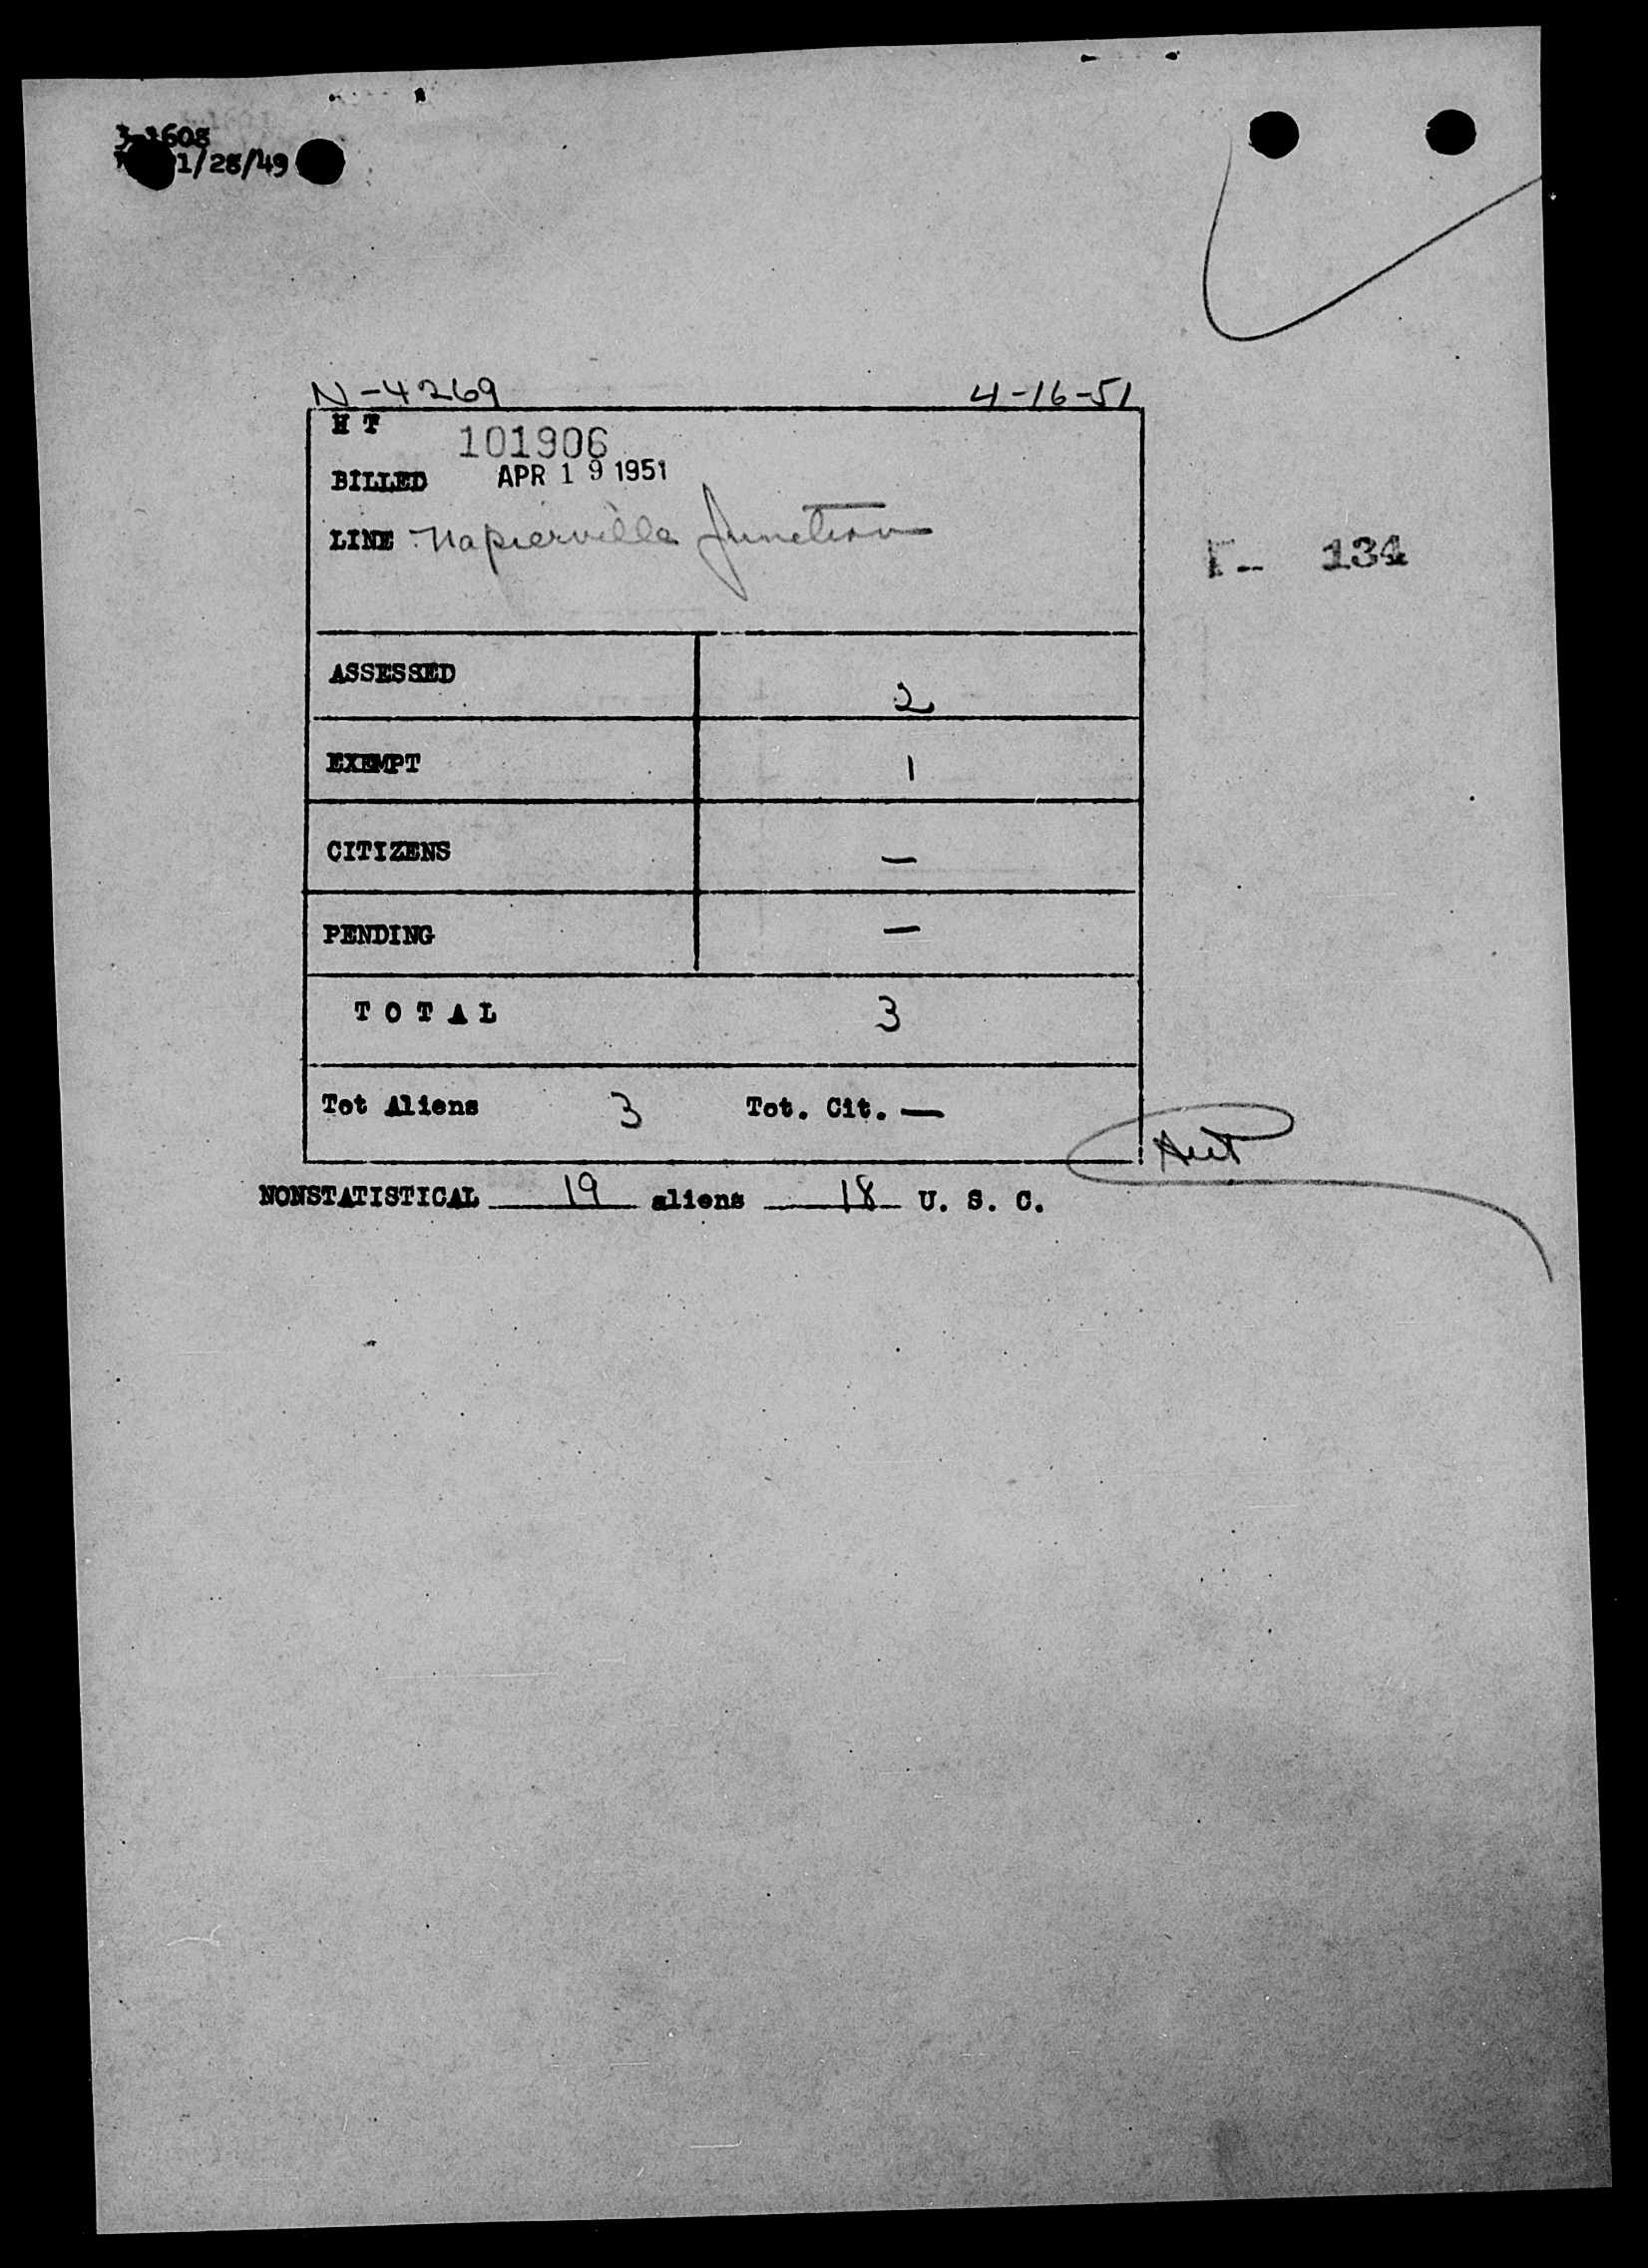 3-1608
1/28/49
N-4269 4-16-51
H T 101906
BILLED APR 19 1951
LINE Napierville Junction
F- 134
ASSESSED 2
EXEMPT 1
CITIZENS —
PENDING —
TOTAL 3
Tot Aliens 3 Tot. Cit. —
NONSTATISTICAL 19 aliens 18 U. S. C.